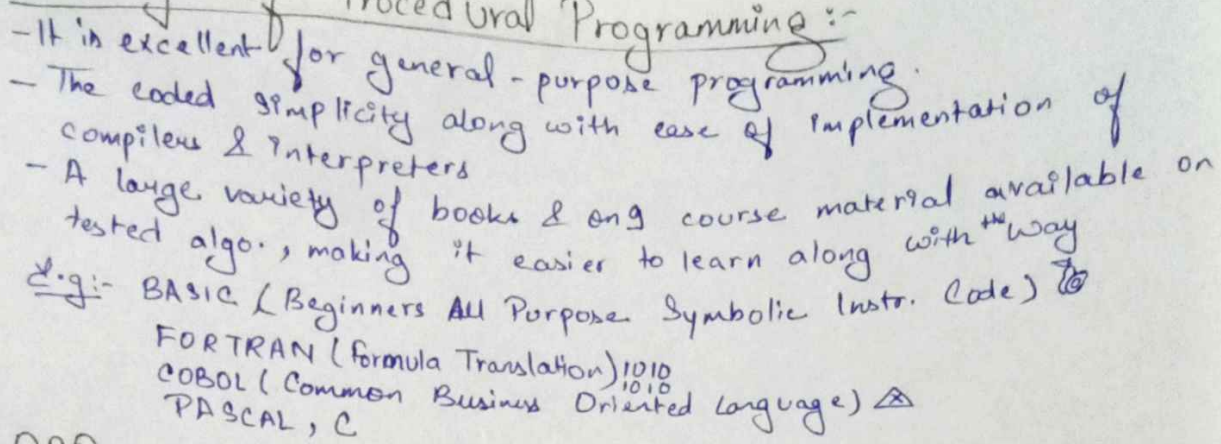 Procedural Programming :-
- It is excellent for general - purpose programming.
- The coded simplicity along with ease of implementation of
compilers & interpreters
- A large variety of books & ong course material available on
tested algo., making it easier to learn along with the way
E.g:- BASIC (Beginners All Purpose Symbolic Instr. Code)
FORTRAN (formula Translation) 1010
1010
COBOL (Common Business Oriented Language)
PASCAL, C